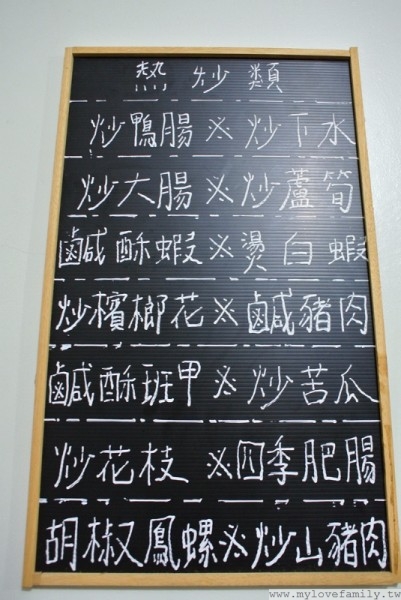 熱炒類
炒鴨腸※炒下水
炒大腸※炒蘆筍
鹹酥蝦※燙白蝦
炒檳榔花※鹹豬肉
鹹酥班甲※炒苦瓜
炒花枝※四季肥腸
胡椒鳳螺※炒山豬肉
www.mylovefamily.tw